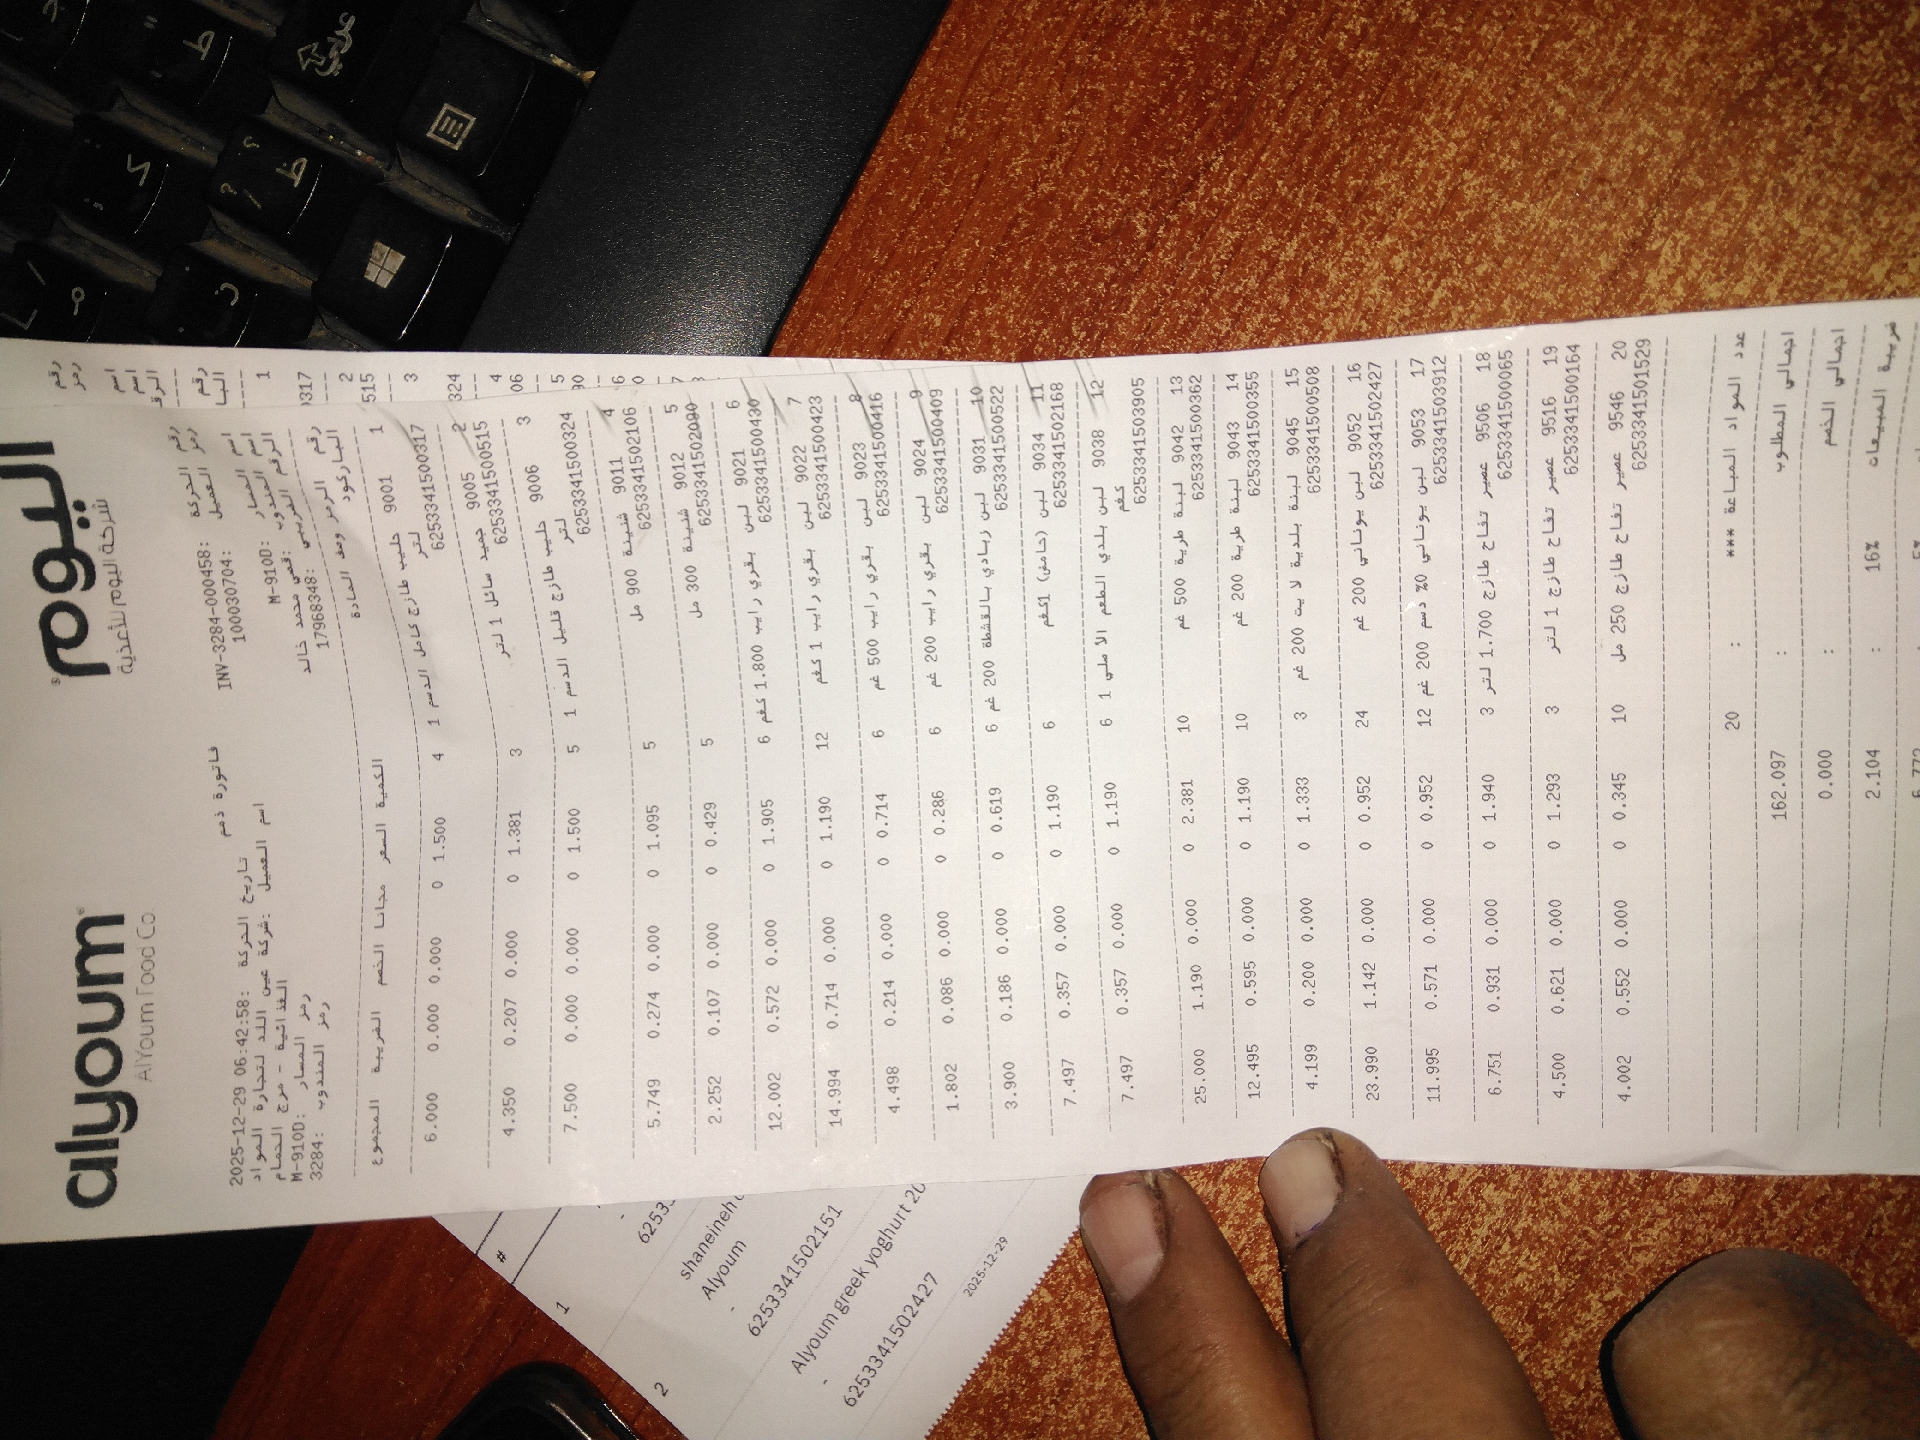 اليوم
شركة اليوم للأغذية
alyoum
AlYoum Food Co.
فاتورة ذمم
رقم الحركة :INV-3284-000458 تاريخ الحركة :2025-12-29 06:42:58
رمز العميل :100030704 اسم العميل :شركة عين اللند لتجارة المواد
الغذائية - مرج الحمام
اسم المسار :M-910D رمز المسار :M-910D
اسم المندوب :قصي محمد خالد رمز المندوب :3284
الرقم الضريبي :17968348
رقم الرمز وصف المادة الكمية السعر مجانا الخصم الضريبة المجموع
الباركود
1 9001 حليب طازج كامل الدسم 1 4 1.500 0 0.000 0.000 6.000
لتر
6253341500317
2 9005 جميد سائل 1 لتر 3 1.381 0 0.000 0.207 4.350
6253341500515
3 9006 حليب طازج قليل الدسم 1 5 1.500 0 0.000 0.000 7.500
لتر
6253341500324
4 9011 شنينة 900 مل 5 1.095 0 0.000 0.274 5.749
6253341502106
5 9012 شنينة 300 مل 5 0.429 0 0.000 0.107 2.252
6253341502090
6 9021 لبن بقري رايب 1.800 كغم 6 1.905 0 0.000 0.572 12.002
6253341500430
7 9022 لبن بقري رايب 1 كغم 12 1.190 0 0.000 0.714 14.994
6253341500423
8 9023 لبن بقري رايب 500 غم 6 0.714 0 0.000 0.214 4.498
6253341500416
9 9024 لبن بقري رايب 200 غم 6 0.286 0 0.000 0.086 1.802
6253341500409
10 9031 لبن زبادي بالقشطة 200 غم 6 0.619 0 0.000 0.186 3.900
6253341500522
11 9034 لبن (حامض) 1كغم 6 1.190 0 0.000 0.357 7.497
6253341502168
12 9038 لبن بلدي الطعم الأصلي 1 6 1.190 0 0.000 0.357 7.497
كغم
6253341503905
13 9042 لبنة طرية 500 غم 10 2.381 0 0.000 1.190 25.000
6253341500362
14 9043 لبنة طرية 200 غم 10 1.190 0 0.000 0.595 12.495
6253341500355
15 9045 لبنة بلدية لايت 200 غم 3 1.333 0 0.000 0.200 4.199
6253341500508
16 9052 لبن يوناني 200 غم 24 0.952 0 0.000 1.142 23.990
6253341502427
17 9053 لبن يوناني 0% دسم 200 غم 12 0.952 0 0.000 0.571 11.995
6253341503912
18 9506 عصير تفاح طازج 1.700 لتر 3 1.940 0 0.000 0.931 6.751
6253341500065
19 9516 عصير تفاح طازج 1 لتر 3 1.293 0 0.000 0.621 4.500
6253341500164
20 9546 عصير تفاح طازج 250 مل 10 0.345 0 0.000 0.552 4.002
6253341501529
عدد المواد المباعة *** : 20
اجمالي المطلوب : 162.097
اجمالي الخصم : 0.000
ضريبة المبيعات 16% : 2.104
#
1
shaneineh
Alyoum
-
6253341502151
2
Alyoum greek yoghurt 20
-
6253341502427
2025-12-29